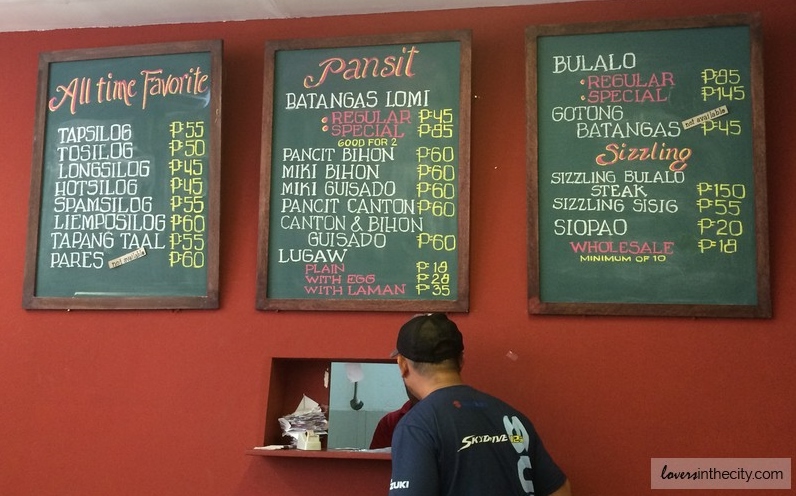 All time Favorite
TAPSILOG ₱55
TOSILOG ₱50
LONGSILOG ₱45
HOTSILOG ₱45
SPAMSILOG ₱55
LIEMPOSILOG ₱60
TAPANG TAAL ₱55
PARES not available ₱60
Pansit
BATANGAS LOMI
• REGULAR ₱45
• SPECIAL ₱85
GOOD FOR 2
PANCIT BIHON ₱60
MIKI BIHON ₱60
MIKI GUISADO ₱60
PANCIT CANTON ₱60
CANTON & BIHON
GUISADO ₱60
LUGAW
PLAIN ₱18
WITH EGG ₱28
WITH LAMAN ₱35
BULALO
• REGULAR ₱85
• SPECIAL ₱145
GOTONG
BATANGAS not available ₱45
Sizzling
SIZZLING BULALO
STEAK ₱150
SIZZLING SISIG ₱55
SIOPAO ₱20
WHOLESALE ₱18
MINIMUM OF 10
SKYDIVE
UZUKI
loversinthecity.com